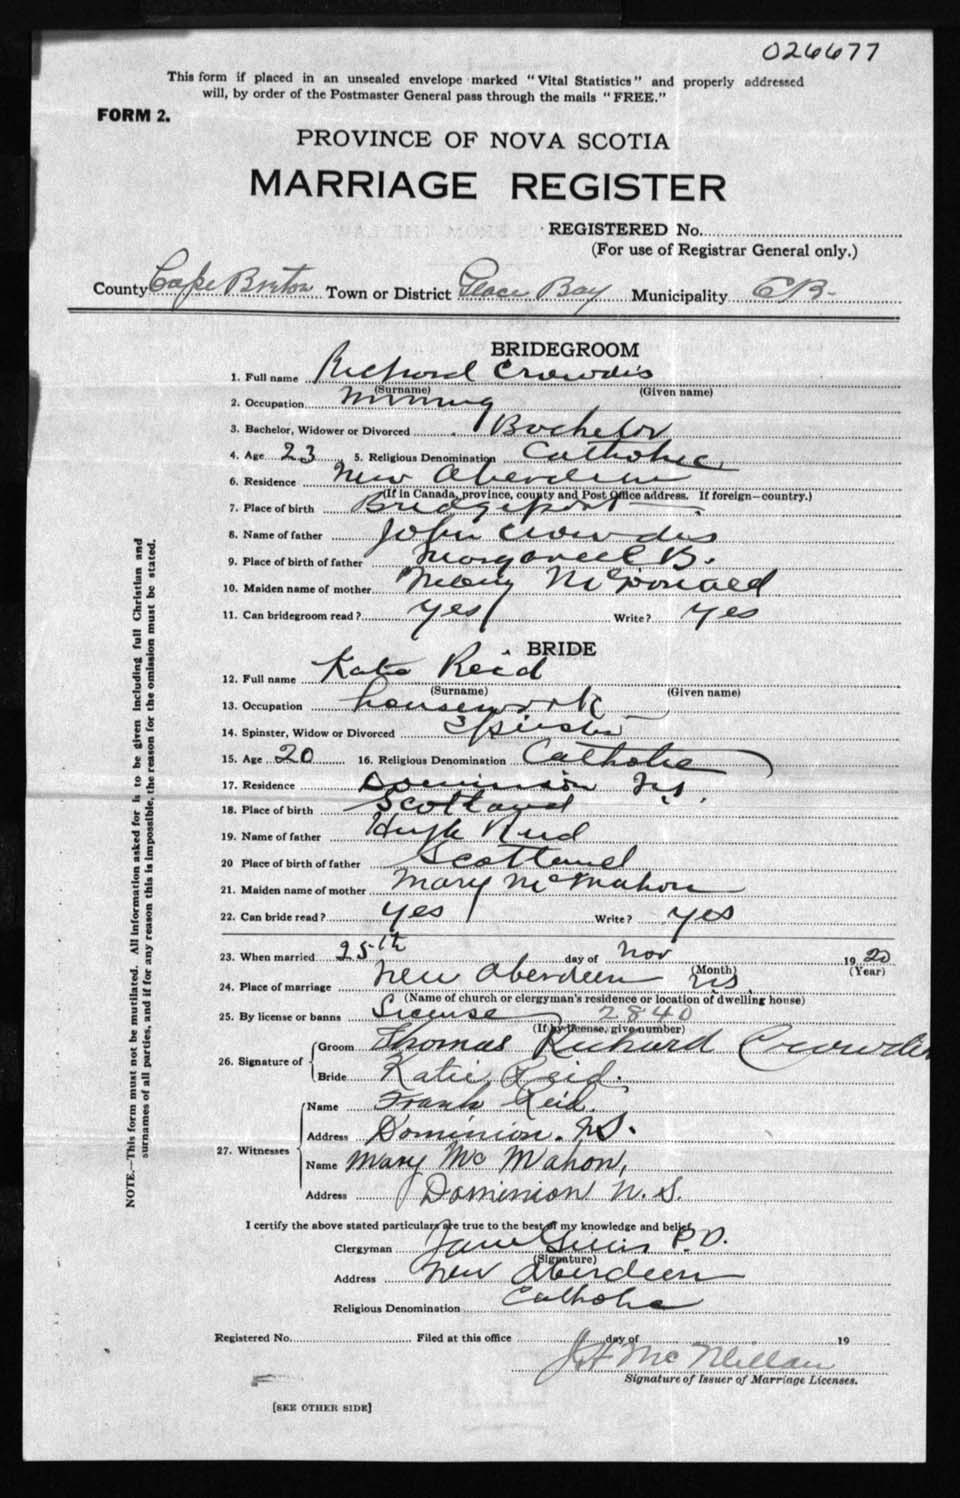 026677
This form if placed in an unsealed envelope marked "Vital Statistics" and properly addressed
will, by order of the Postmaster General pass through the mails "FREE."
FORM 2.
PROVINCE OF NOVA SCOTIA
MARRIAGE REGISTER
REGISTERED No.
(For use of Registrar General only.)
County Cape Breton Town or District Glace Bay Municipality C B.
BRIDEGROOM
1. Full name Richard Crowdis
(Surname) (Given name)
2. Occupation Mining
3. Bachelor, Widower or Divorced Bachelor
4. Age 23 5. Religious Denomination Catholic
6. Residence New Aberdeen
(If in Canada, province, county and Post Office address. If foreign—country.)
7. Place of birth Bridgeport
8. Name of father John Crowdis
9. Place of birth of father B.
10. Maiden name of mother McDonald
11. Can bridegroom read? yes Write? yes
BRIDE
12. Full name Katie Reid
(Surname) (Given name)
13. Occupation housework
14. Spinster, Widow or Divorced Spinster
15. Age 20 16. Religious Denomination Catholic
17. Residence Dominion N.S.
18. Place of birth Scotland
19. Name of father Hugh Reid
20 Place of birth of father Scotland
21. Maiden name of mother Mary McMahon
22. Can bride read? yes Write? yes
23. When married 25th day of Nov 1920
(Month) (Year)
24. Place of marriage New Aberdeen N.S.
(Name of church or clergyman's residence or location of dwelling house)
25. By license or banns License 2840
(If by license, give number)
26. Signature of Groom Thomas Richard Crowdis
Bride Katie Reid.
27. Witnesses Name Frank Reid.
Address Dominion. N.S.
Name Mary Mc Mahon,
Address Dominion N.S.
I certify the above stated particulars are true to the best of my knowledge and belief.
Clergyman P.P.
(Signature)
Address New Aberdeen
Religious Denomination Catholic
Registered No. Filed at this office day of 19
J H McMillan
Signature of Issuer of Marriage Licenses.
[SEE OTHER SIDE]
NOTE.—This form must not be mutilated. All information asked for is to be given including full Christian and
surnames of all parties, and if for any reason this is impossible, the reason for the omission must be stated.